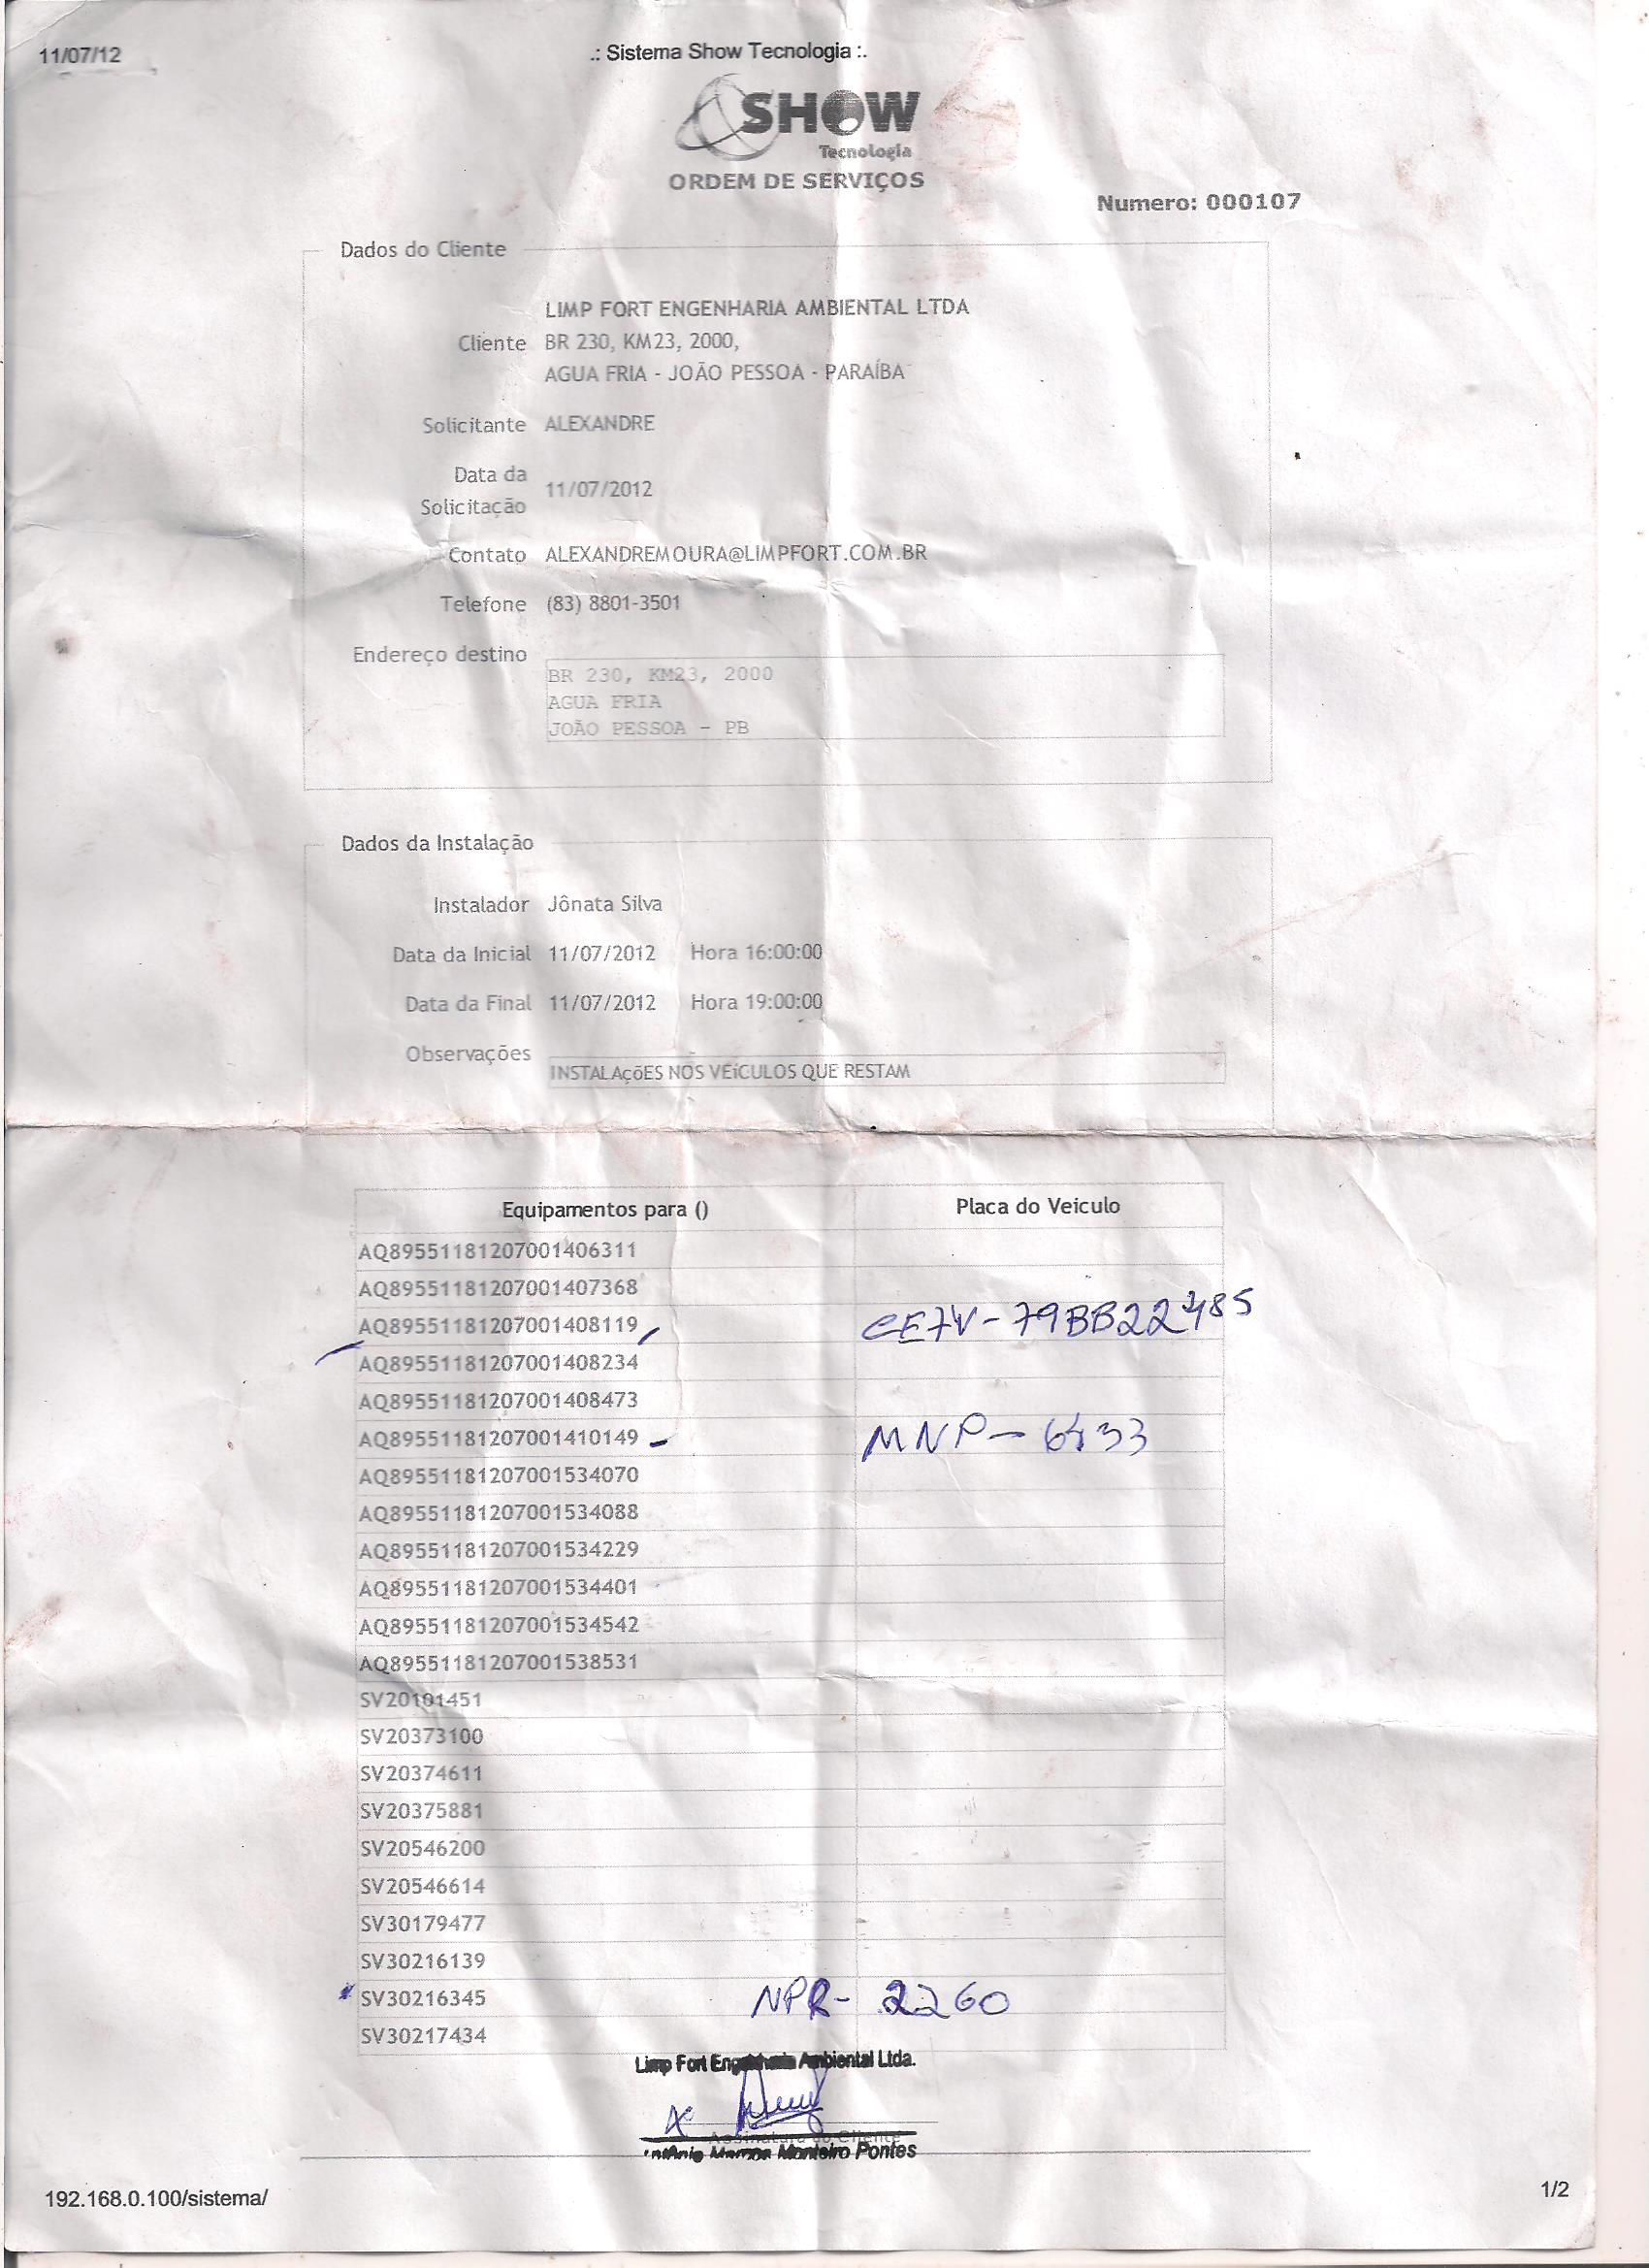 11/07/12
.: Sistema Show Tecnologia :.
SHOW
Tecnologia
ORDEM DE SERVIÇOS
Numero: 000107
Dados do Cliente
LIMP FORT ENGENHARIA AMBIENTAL LTDA
Cliente BR 230, KM23, 2000,
AGUA FRIA - JOÃO PESSOA - PARAÍBA
Solicitante ALEXANDRE
Data da Solicitação 11/07/2012
Contato ALEXANDREMOURA@LIMPFORT.COM.BR
Telefone (83) 8801-3501
Endereço destino
BR 230, KM23, 2000
AGUA FRIA
JOÃO PESSOA - PB
Dados da Instalação
Instalador Jônata Silva
Data da Inicial 11/07/2012 Hora 16:00:00
Data da Final 11/07/2012 Hora 19:00:00
Observações
INSTALAçõES NOS VEíCULOS QUE RESTAM
Equipamentos para () Placa do Veiculo
AQ89551181207001406311
AQ89551181207001407368
AQ89551181207001408119
AQ89551181207001408234
AQ89551181207001408473
AQ89551181207001410149 MNP-6433
AQ89551181207001534070
AQ89551181207001534088
AQ89551181207001534229
AQ89551181207001534401
AQ89551181207001534542
AQ89551181207001538531
SV20101451
SV20373100
SV20374611
SV20375881
SV20546200
SV20546614
SV30179477
SV30216139
SV30216345 NPR-2260
SV30217434
Limp Fort Engenharia Ambiental Ltda.
Assinatura do Cliente
Monteiro Pontes
192.168.0.100/sistema/
1/2